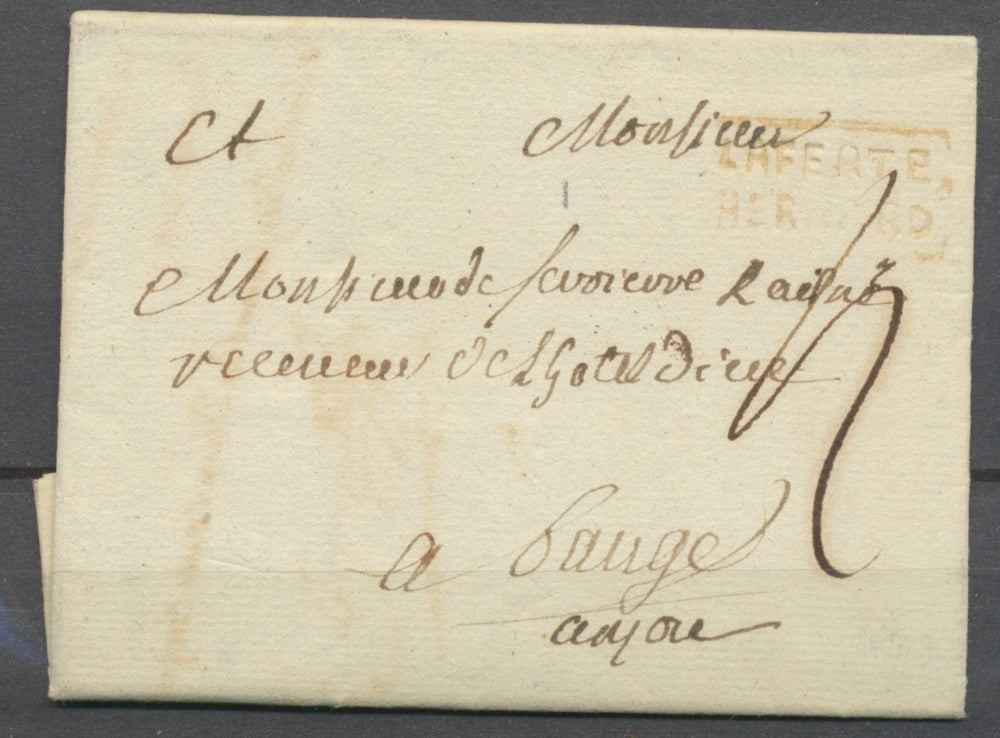 A Monsieur
LAFERTE
BERNARD
Monsieur de l'ainé
receveur de Lhotel dieu
a bauge
anjou